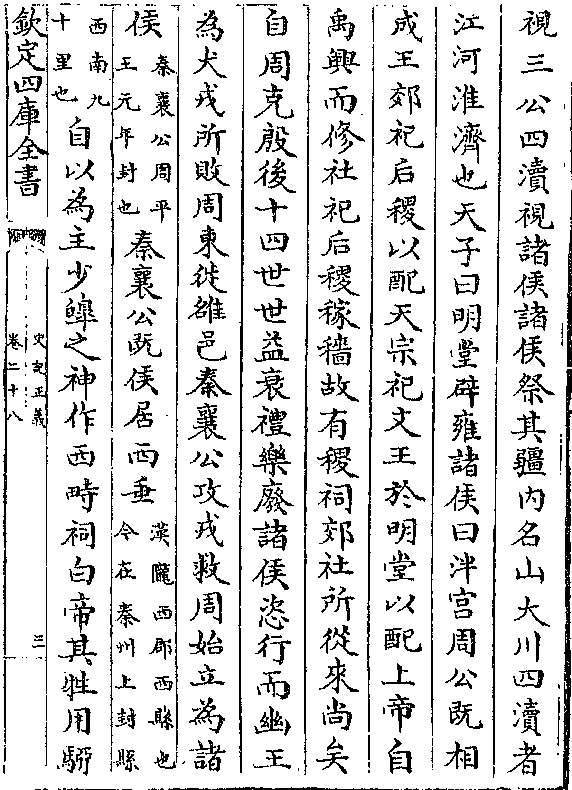 視三公四瀆視諸侯諸侯祭其疆内名山大川四瀆者
江河淮濟也天子曰明堂辟雍諸侯曰泮宫周公既相
成王郊祀后稷以配天宗祀文王於明堂以配上帝自
禹興而修社祀后稷稼穡故有稷祠郊社所從來尚矣
自周克殷後十四世世益衰禮樂廢諸侯恣行而幽王
為犬戎所敗周東徙雒邑秦襄公攻戎救周始立為諸
侯秦襄公周平王元年封也秦襄公既侯居西垂漢隴西郡西縣也今在秦州上封縣
西南九十里也自以為主少皥之神作西畤祠白帝其牲用駵
欽定四庫全書
史記正義
卷二十八
三